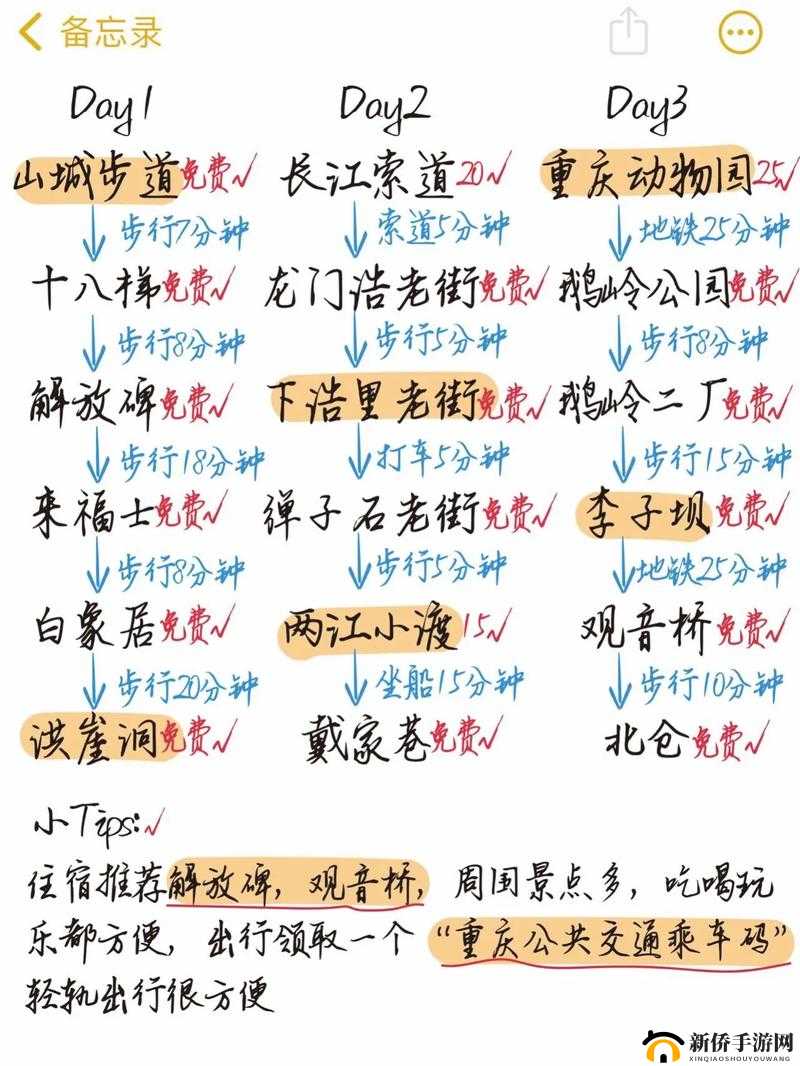 备忘录
Day1 Day2 Day3
山城步道免费 长江索道20 重庆动物园25
步行7分钟 索道5分钟 地铁25分钟
十八梯免费 龙门浩老街免费 鹅岭公园免费
步行8分钟 步行5分钟 步行8分钟
解放碑免费 下浩里老街免费 鹅岭二厂免费
步行18分钟 打车5分钟 步行15分钟
来福士免费 弹子石老街免费 李子坝免费
步行8分钟 步行5分钟 地铁25分钟
白象居免费 两江小渡15 观音桥免费
步行20分钟 坐船15分钟 步行10分钟
洪崖洞免费 戴家巷免费 北仓免费
小Tips:
住宿推荐解放碑，观音桥，周围景点多，吃喝玩
乐都方便，出行领取一个“重庆公共交通乘车码”
轻轨出行很方便
新侨手游网
XINQIAOSHOUYOUWANG